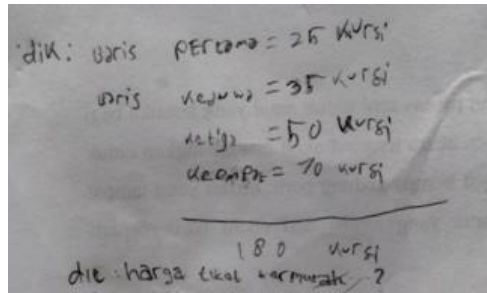 dik: baris pertama = 25 kursi
baris keduwa = 35 kursi
ketiga = 50 kursi
keempat = 70 kursi
180 kursi
dit : harga tiket termurah ?